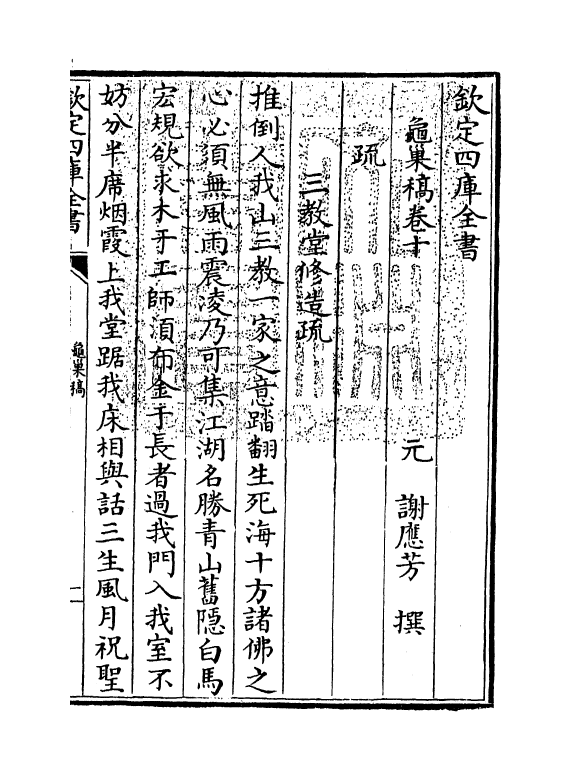 欽定四庫全書
龜巢稿卷十
元 謝應芳 撰
疏
三教堂修造疏
推倒人我山三教一家之意踏翻生死海十方諸佛之
心必須無風雨震凌乃可集江湖名勝青山舊隠白馬
宏規欲求木于工師湏布金于長者過我門入我室不
妨分半席烟霞上我堂踞我床相與話三生風月祝聖
欽定四庫全書
龜巢稿